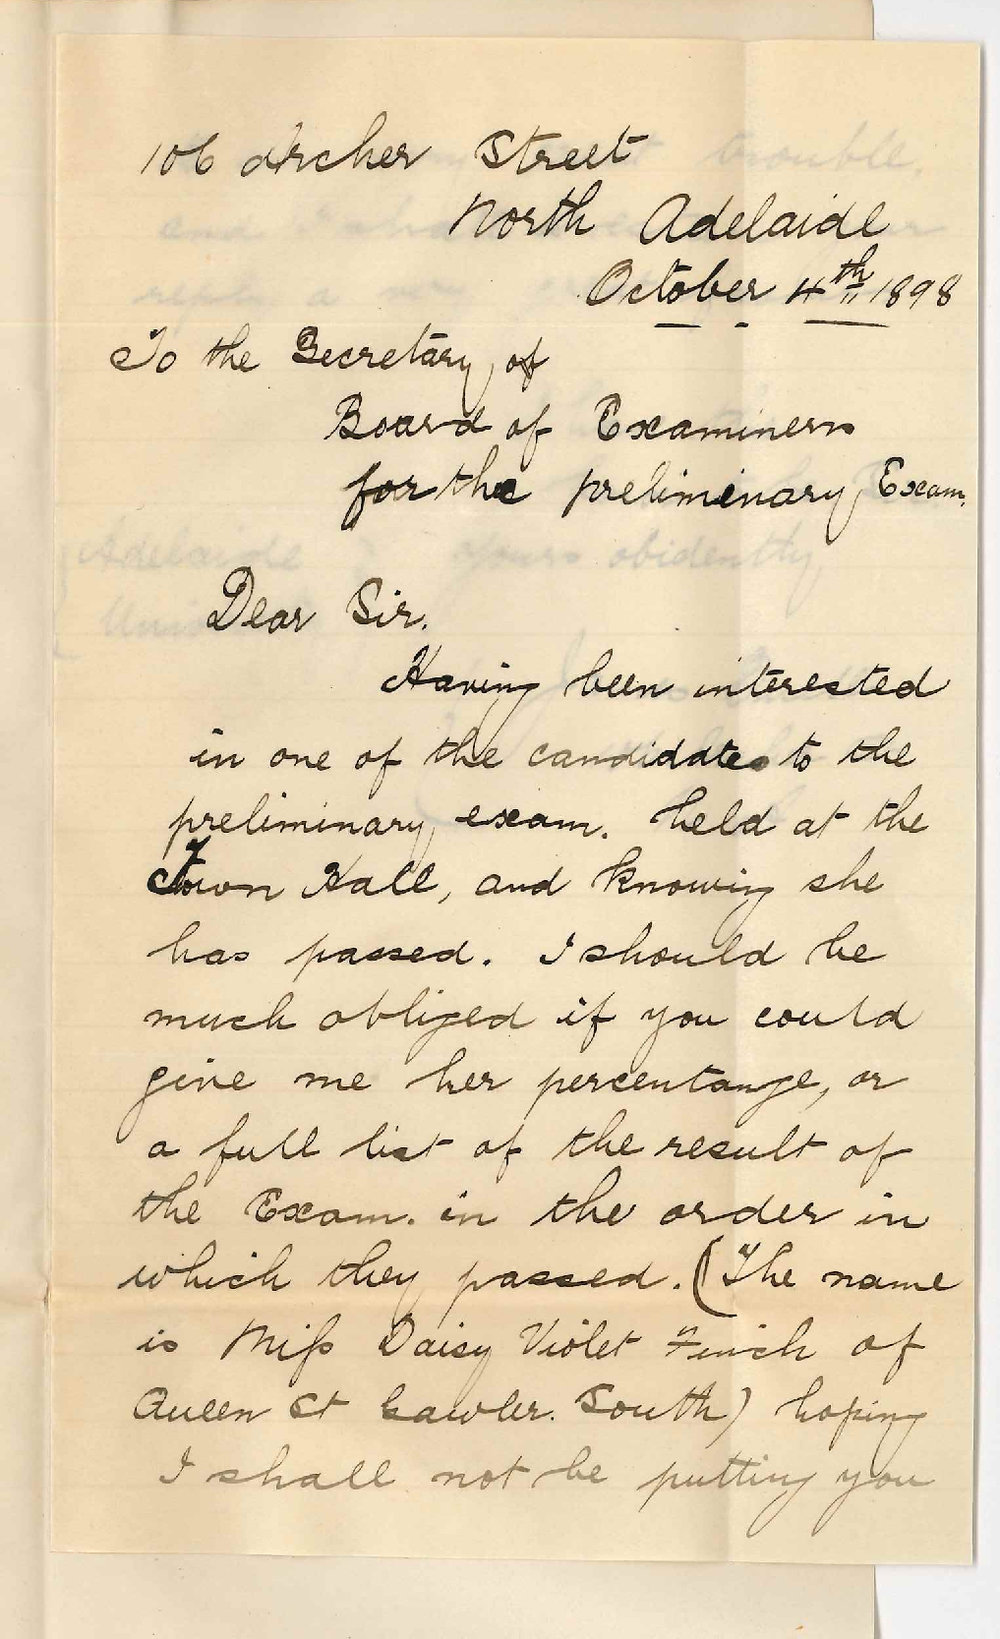 106 Archer Street
North Adelaide
October 4th 1898
To the Secretary of
Board of Examiners
for the preliminary Exam.
Dear Sir.
Having been interested
in one of the candidates to the
preliminary exam. held at the
Town Hall, and knowing she
has passed. I should be
much obliged if you could
give me her percentange, or
a full list of the result of
the Exam. in the order in
which they passed. (The name
is Miss Daisy Violet Finch of
Queen St Gawler. South) hoping
I shall not be putting you
trouble,
and
reply
Adelaide yours obidently